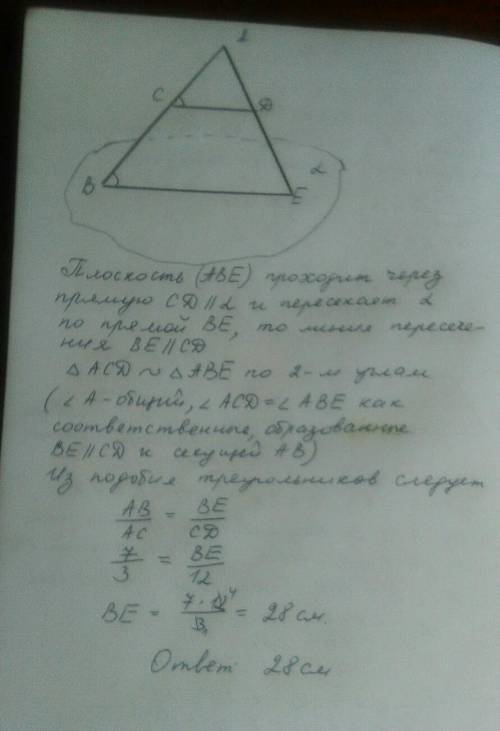 A
C
D
B
E
α
Плоскость (ABE) проходит через
прямую CD || α и пересекает α
по прямой BE, то линия пересече-
ния BE || CD
△ ACD ~ △ ABE по 2-м углам
(∠ A - общий, ∠ ACD = ∠ ABE как
соответственные, образованные
BE || CD и секущей AB)
Из подобия треугольников следует
AB/AC = BE/CD
7/3 = BE/12
BE = 7 · 12⁴/3₁ = 28 см.
Ответ 28 см